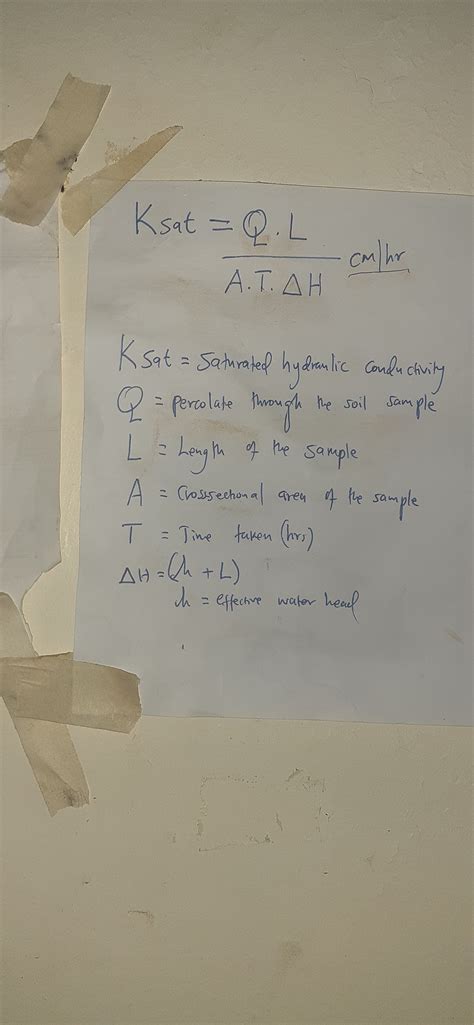 Ksat = Q.L
A.T.ΔH cm/hr
Ksat = Saturated hydraulic conductivity
Q = percolate through the soil sample
L = Length of the sample
A = Crossectional area of the sample
T = Time taken (hrs)
ΔH = (h + L)
h = effective water head